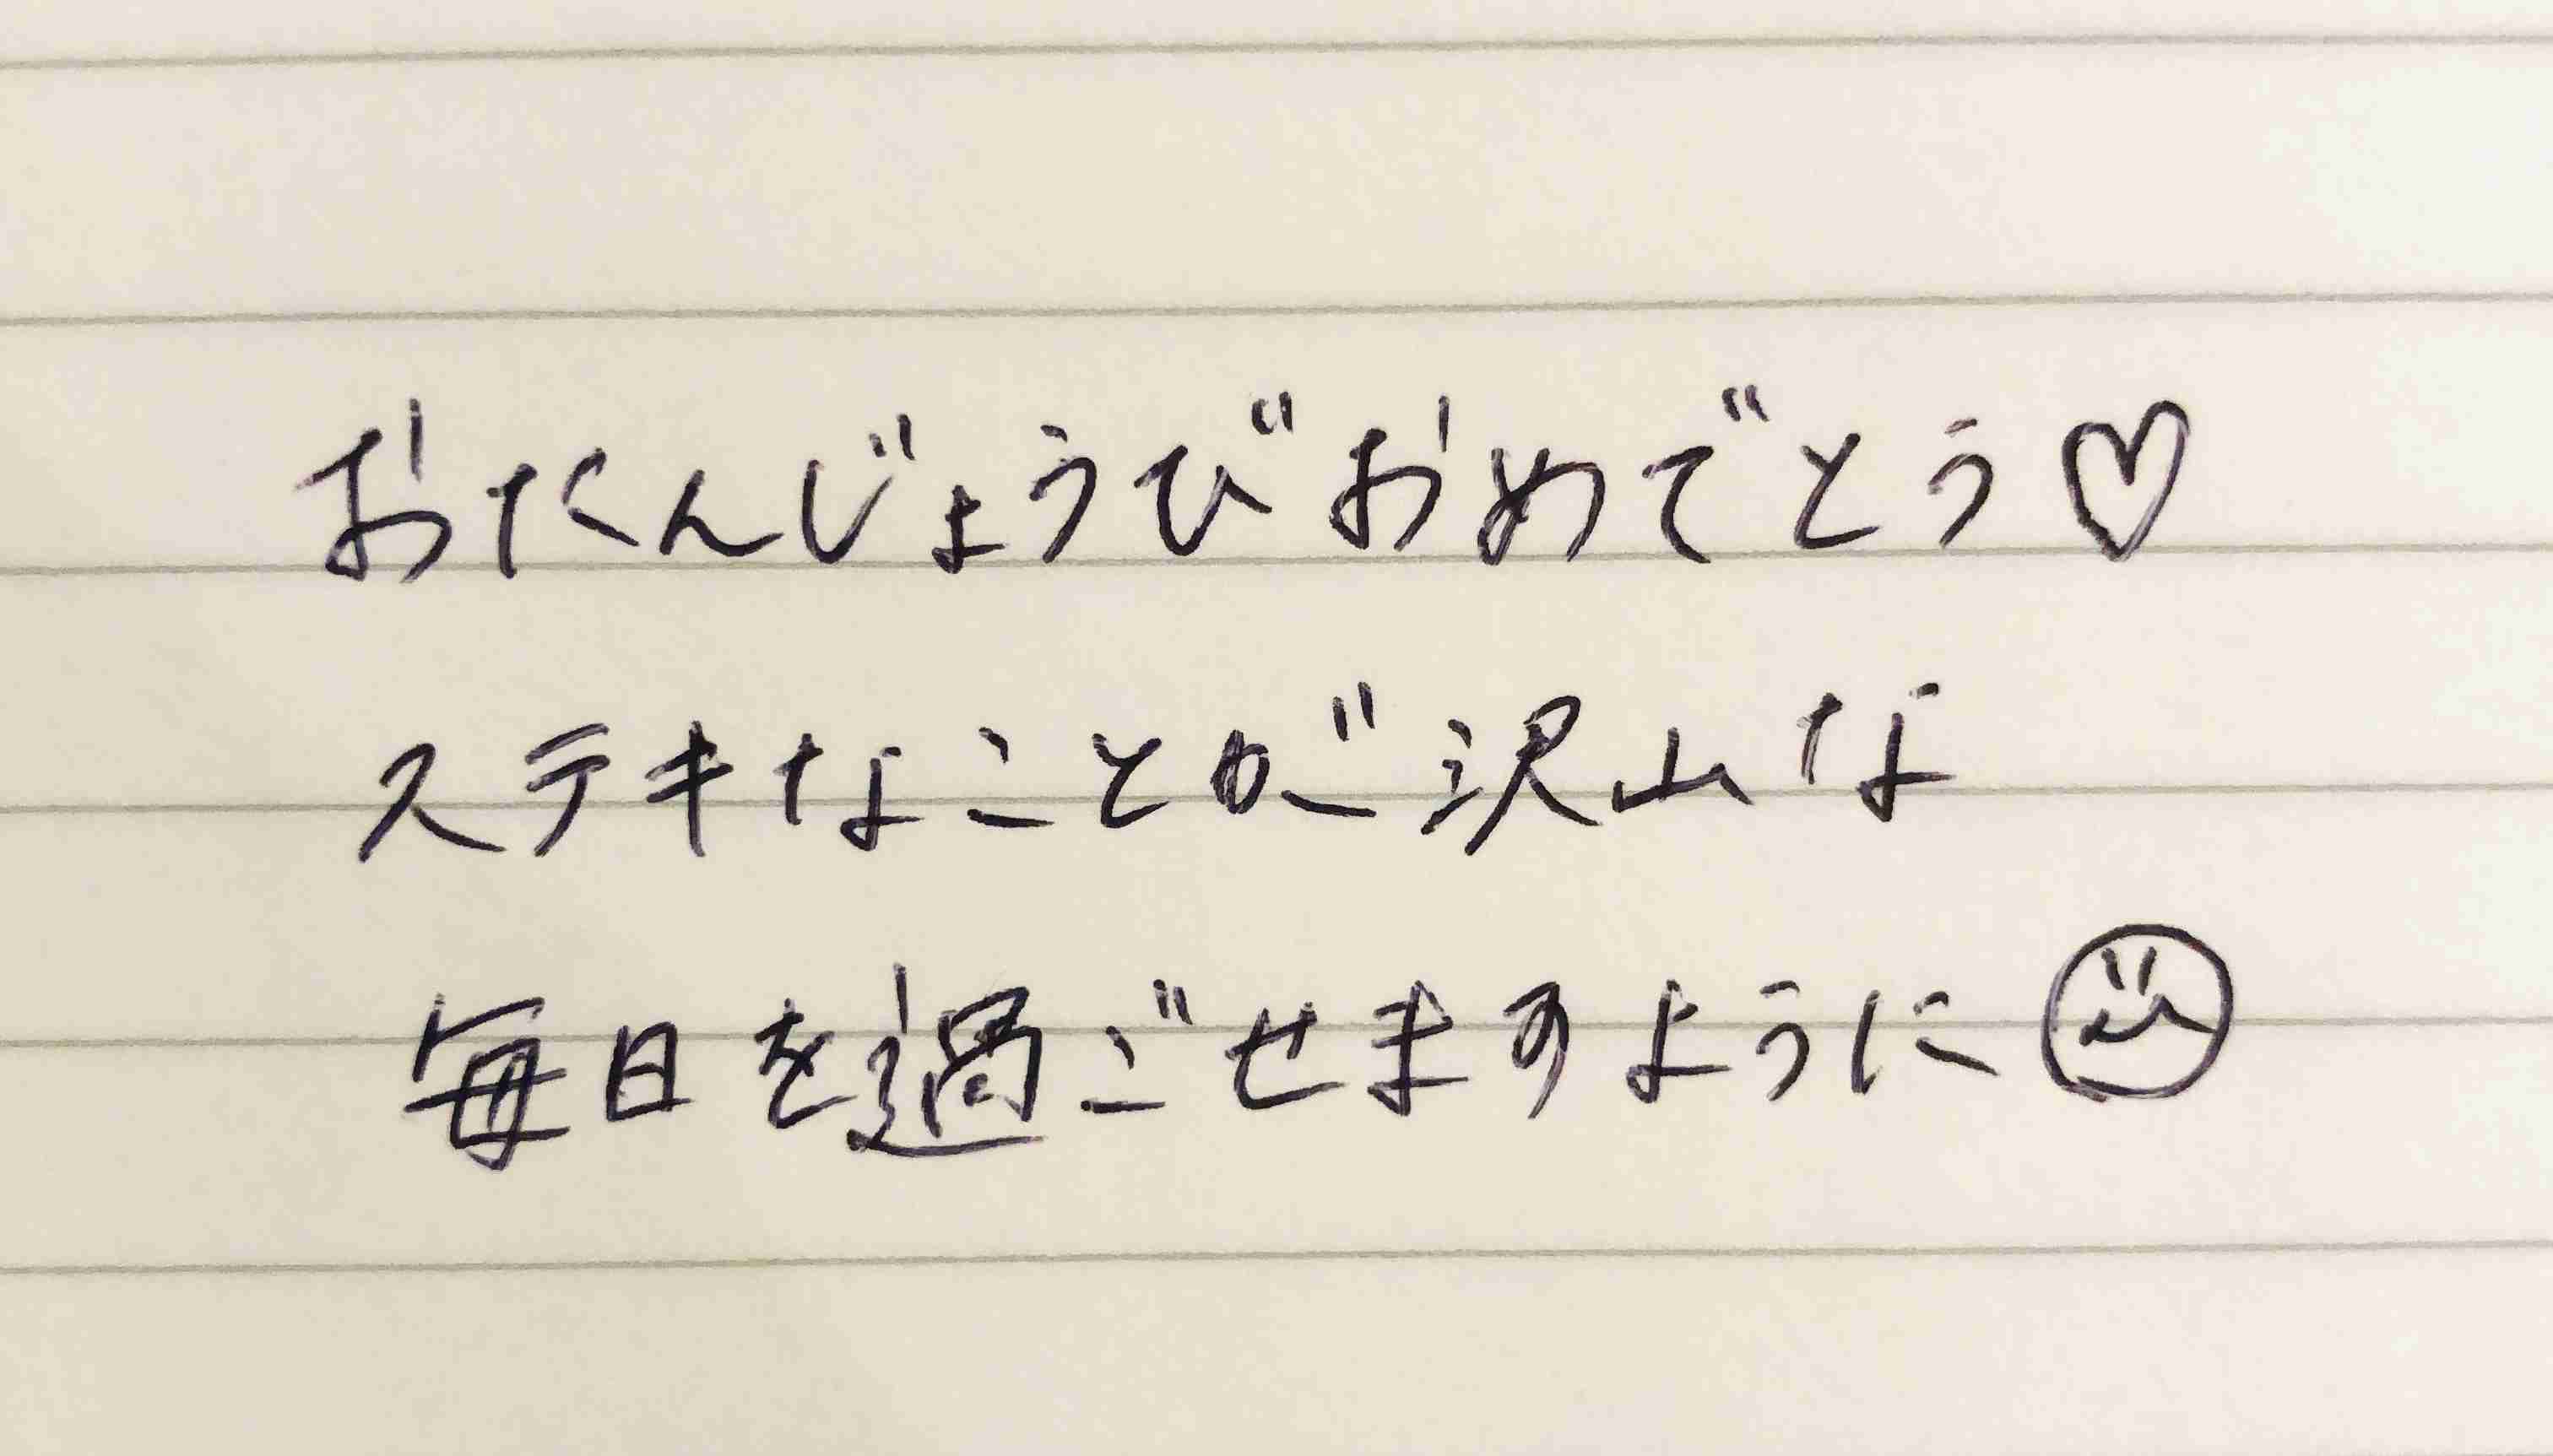 おたんじょうびおめでとう♡
ステキなことが沢山な
毎日を過ごせますように☺